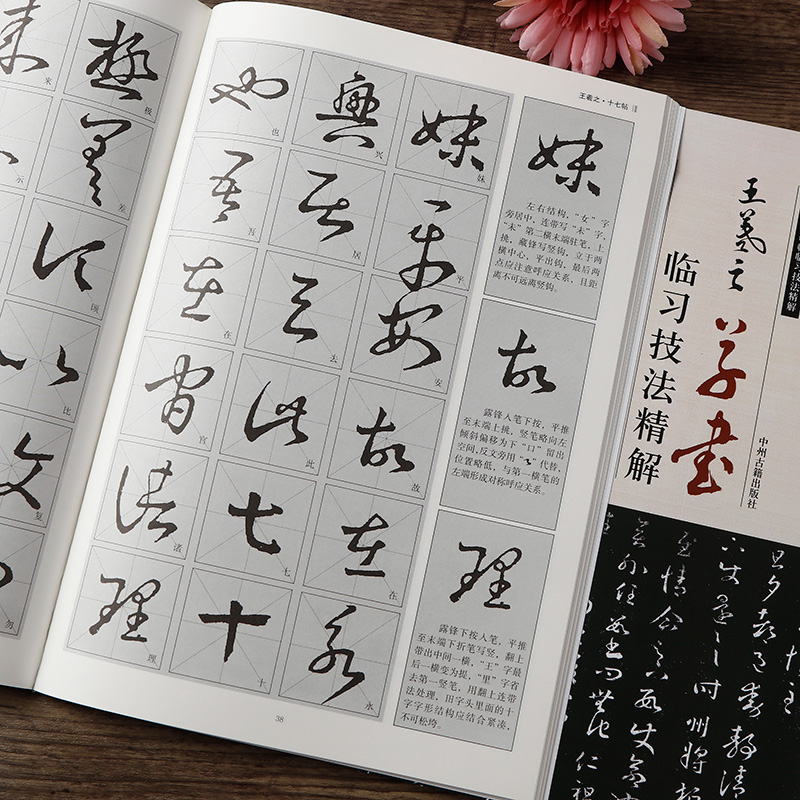 王羲之·十七帖
妹
左右结构，“女”字
旁居中，连带写“未”字，
“未”第二横末端驻笔，上
挑，藏锋写竖钩，立于两
横中心，平出钩，最后两
点应注意呼应关系，且距
离不可远离竖钩。
故
露锋入笔下按，平推
至末端上挑，竖笔略向左
倾斜偏移为下“口”留出
空间，反文旁用“ ”代替，
位置略低，与第一横笔的
左端形成对称呼应关系。
理
露锋下按入笔，平推
至末端下折笔写竖，翻上
带出中间一横，“王”字最
后一横变为提，“里”字省
去第一竖笔，用翻上连带
法处理，旧字头里面的十
字字形结构应结合紧凑，
不可松垮。
妹 平 安 故 在 永
兴 居 去 此 七 十
也 吾 在 官 诸 理
38
极 差 顷 比 复 勿
来 示
王羲之
草书
临习技法精解
中州古籍出版社
临习技法精解